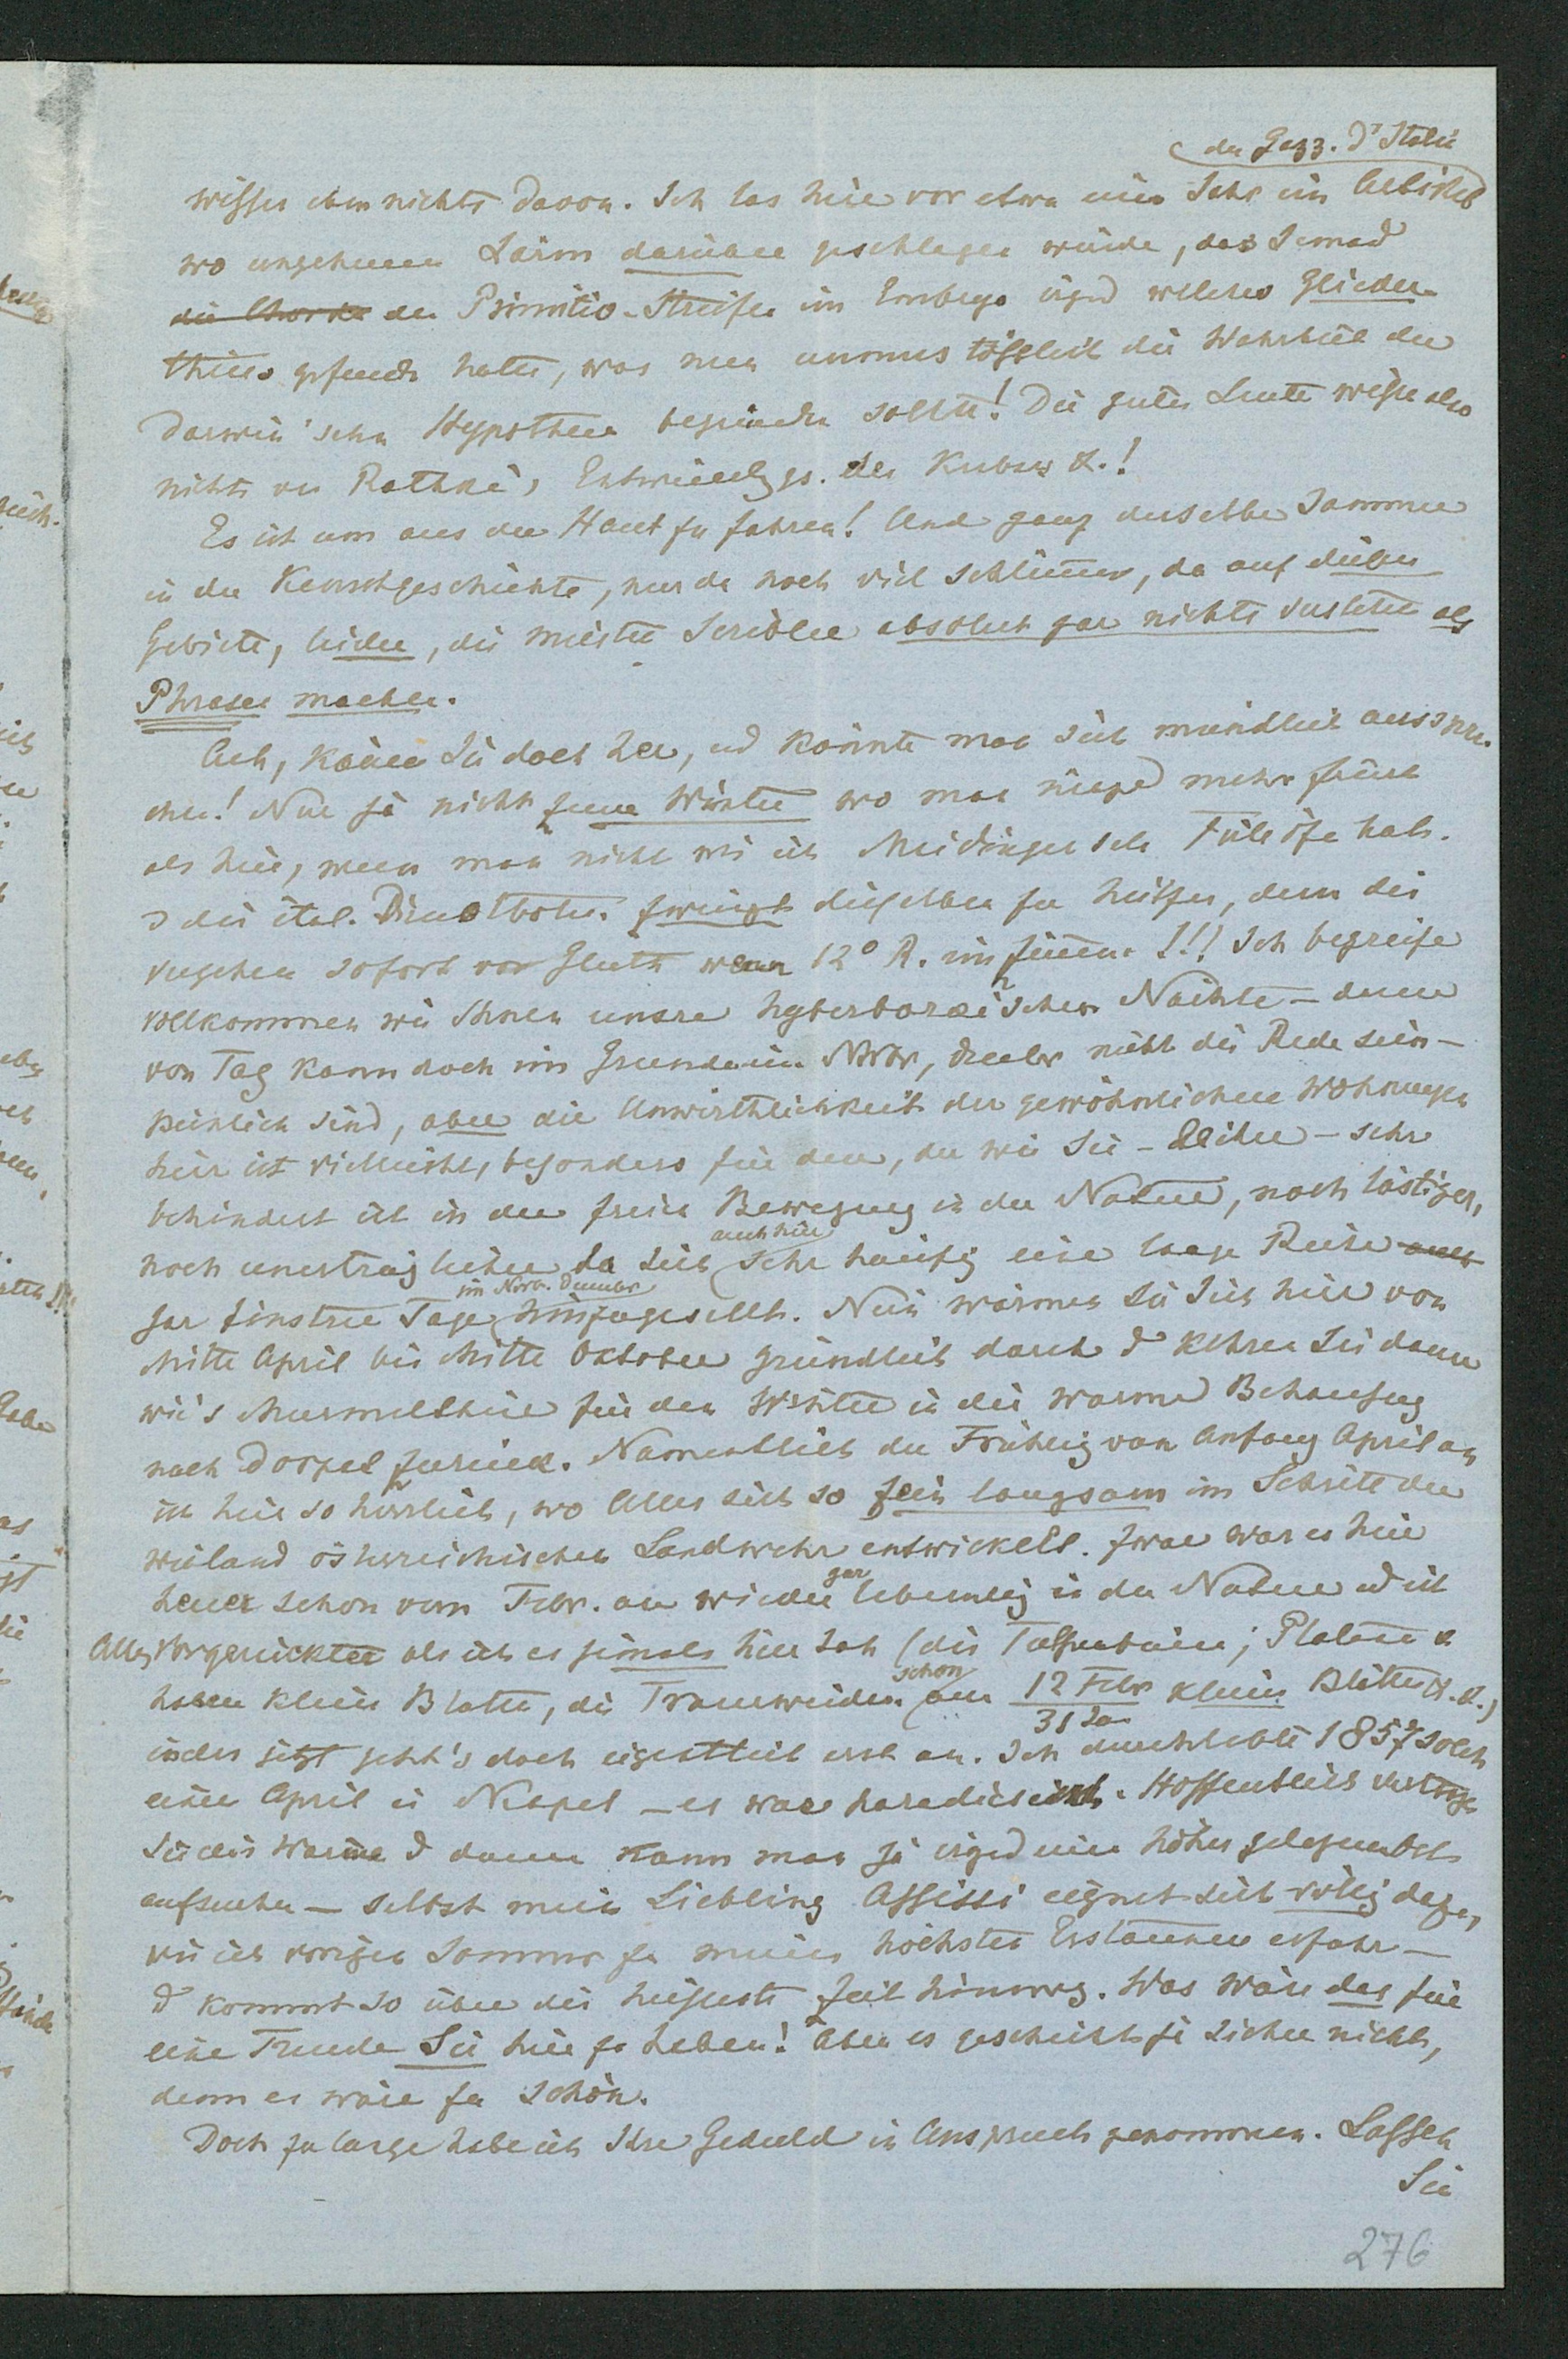 der Gazz. d'Italia
wissen eben nichts davon. Ich las hier vor etwa einem Jahr ein Artikel
wo ungeheurer Lärm darüber geschlagen wurde, dass Jemand
die Chorda den Primitiv-Streifen im Embryo irgend welches Glieder-
thiers gefunden hatte, was nun unumstößlich die Wahrheit der
Darwin'schen Hypothese begründen sollte! Die guten Leute wissen also
nichts von Rathke's Entwickelgs. des Krebses &.!
Es ist um aus der Haut zu fahren! Und ganz derselbe Jammer
in der Kunstgeschichte, nur da noch viel schlimmer, da auf diesem
Gebiete, leider, die meisten Scribler absolut gar nichts verstehen als
Phrasen machen.
Ach, kämen Sie doch her, und könnte man sich mündlich ausspre-
chen! Nur ja nicht zum Winter wo man nirgend mehr friert
als hier, wenn man nicht wie ich Meidinger'sche Füllöfen hat.
& die ital. Dienstboten zwingt dieselben zu heitzen, denn die
vergehen sofort vor Gluth wenn 12° R. im Zimmer!!! Ich begreife
vollkommen wie Ihnen unsre hyberboräischen Nächte – denn
von Tag kann doch im Grunde im Novbr, Decbr nicht die Rede sein –
peinlich sind, aber die Unwirthlichkeit der gewöhnlichen Wohnungen
hier ist vielleicht, besonders für den, der wie Sie – leider – sehr
behindert ist in der freien Bewegung in der Natur, noch lästiger,
noch unerträglicher da sich auch hier sehr häufig eine lange Reihe
gar finstrer Tage im Novbr. Decembr hinzugesellt. Nein wärmen Sie Sich hier von
Mitte April bis Mitte Oktober gründlich durch & kehren Sie dann
wie's Murmelthier für den Winter in die warme Behausung
nach Dorpat zurück. Namentlich der Frühling von Anfang April an
ist hier so herrlich, wo Alles sich so fein langsam im Schritt der
weiland österreichischen Landwehr entwickelt. Zwar war es hier
heuer schon vom Febr. an wieder gar lebendig in der Natur und ist
Alles vorgerückter als ich es jemals hier sah (die Tulpenbäume, Platanen &
haben kleine Blätter, die Trauerweiden schon am 12 Febr / 31 Jan kleine Blätter &.&.)
indes jetzt geht's doch eigentlich erst an. Ich durchlebte 1857 solch
einen April in Neapel – es war paradiesisch. Hoffentlich vertragen
Sie die Wärme & dann kann man ja irgend einen höher gelegenen Ort
aufsuchen – selbst mein Liebling Assisi eignet sich völlig dazu,
wie ich vorigen Sommer zu meinem höchsten Erstaunen erfahr –
& kommt so über die heisseste Zeit hinweg. Was wäre das für
eine Freude Sie hier zu haben! Aber es geschieht ja sicher nicht,
denn es wäre zu schön.
Doch zu lange habe ich Ihre Geduld in Anspruch genommen. Lassen
Sie
276